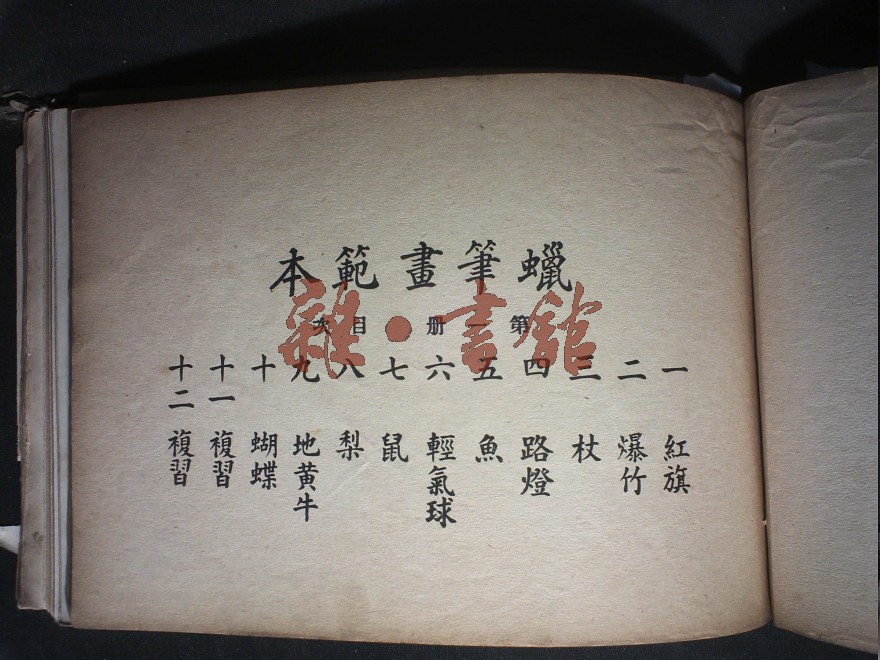 蠟筆畫範本
第一册 目次
一 紅旗
二 爆竹
三 杖
四 路燈
五 魚
六 輕氣球
七 鼠
八 梨
九 地黄牛
十 蝴蝶
十一 複習
十二 複習
雜·書館